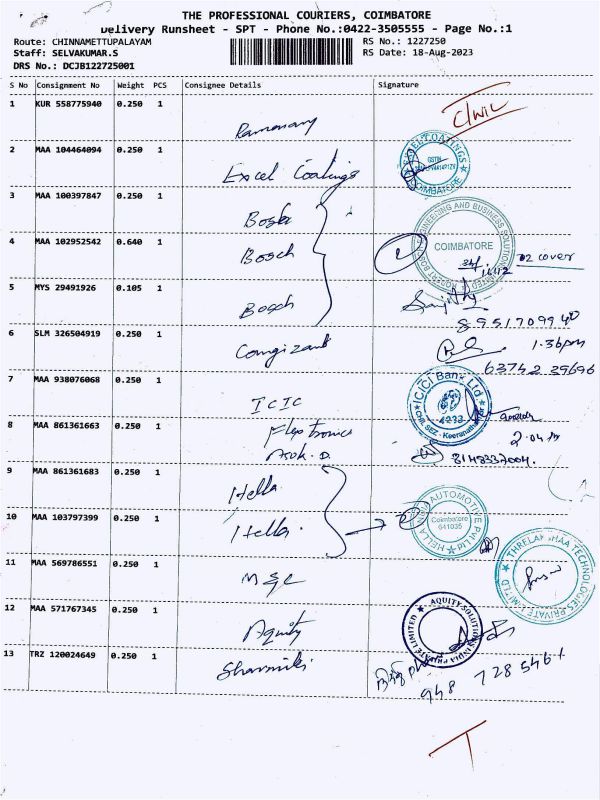 THE PROFESSIONAL COURIERS, COIMBATORE
Delivery Runsheet - SPT - Phone No.:0422-3505555 - Page No.:1
Route: CHINNAMETTUPALAYAM RS No.: 1227250
Staff: SELVAKUMAR.S RS Date: 18-Aug-2023
DRS No.: DCJB122725001
S No Consignment No Weight PCS Consignee Details Signature
1 KUR 558775940 0.250 1
Ramasamy
2 MAA 104464094 0.250 1
Excel Coatings
COIMBATORE
3 MAA 100397847 0.250 1
Bosch
4 MAA 102952542 0.640 1
Bosch
COIMBATORE
02 cover
5 MYS 29491926 0.105 1
Bosch
8951709940
6 SLM 326504919 0.250 1
Congizant
1.36pm
63742 39696
7 MAA 938076068 0.250 1
ICIC
ICICI Bank Ltd
CHIL SEZ - Keeranatham
8 MAA 861361663 0.250 1
Flextronics
Asok. D
2.04
8148337004.
9 MAA 861361683 0.250 1
Hella
10 MAA 103797399 0.250 1
Hella.
HELLA INDIA AUTOMOTIVE PVT LTD
Coimbatore
641035
11 MAA 569786551 0.250 1
THRELAKSHAA TECHNOLOGIES PRIVATE LIMITED
12 MAA 571767345 0.250 1
Aquity
AQUITY SOLUTIONS INDIA PRIVATE LIMITED
13 TRZ 120024649 0.250 1
Sharmiki
948 728 5461